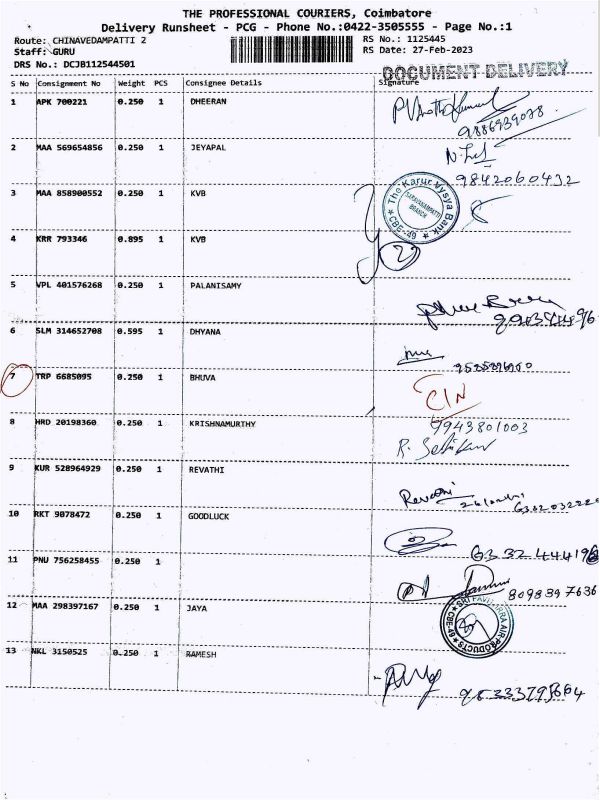 THE PROFESSIONAL COURIERS, Coimbatore
Delivery Runsheet - PCG - Phone No.:0422-3505555 - Page No.:1
Route: CHINAVEDAMPATTI 2
RS No.: 1125445
Staff: GURU
RS Date: 27-Feb-2023
DRS No.: DCJB112544501
DOCUMENT DELIVERY
S No Consignment No Weight PCS Consignee Details Signature
1 APK 700221 0.250 1 DHEERAN
9886939078
2 MAA 569654856 0.250 1 JEYAPAL
9842060432
3 MAA 858900552 0.250 1 KVB
The Karur Vysya Bank
SARAVANAMPATTI
BRANCH
CBE-49
4 KRR 793346 0.895 1 KVB
5 VPL 401576268 0.250 1 PALANISAMY
6 SLM 314652708 0.595 1 DHYANA
7 TRP 6685095 0.250 1 BHUVA
CIN
8 HRD 20198360 0.250 1 KRISHNAMURTHY
9943801003
9 KUR 528964929 0.250 1 REVATHI
Revathi
10 RKT 9078472 0.250 1 GOODLUCK
11 PNU 756258455 0.250 1
8098397636
12 MAA 298397167 0.250 1 JAYA
13 NKL 3150525 0.250 1 RAMESH